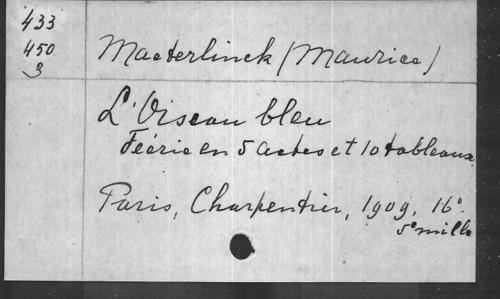 433
450
3
Maeterlinck (Maurice)
L'Oiseau bleu
Féerie en 5 actes et 10 tableaux.
Paris, Charpentier, 1909, 16°.
5e mille